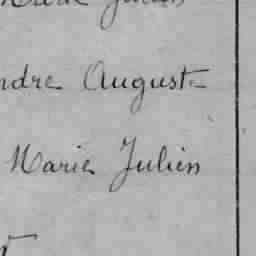 ndre Auguste
Marie Julien